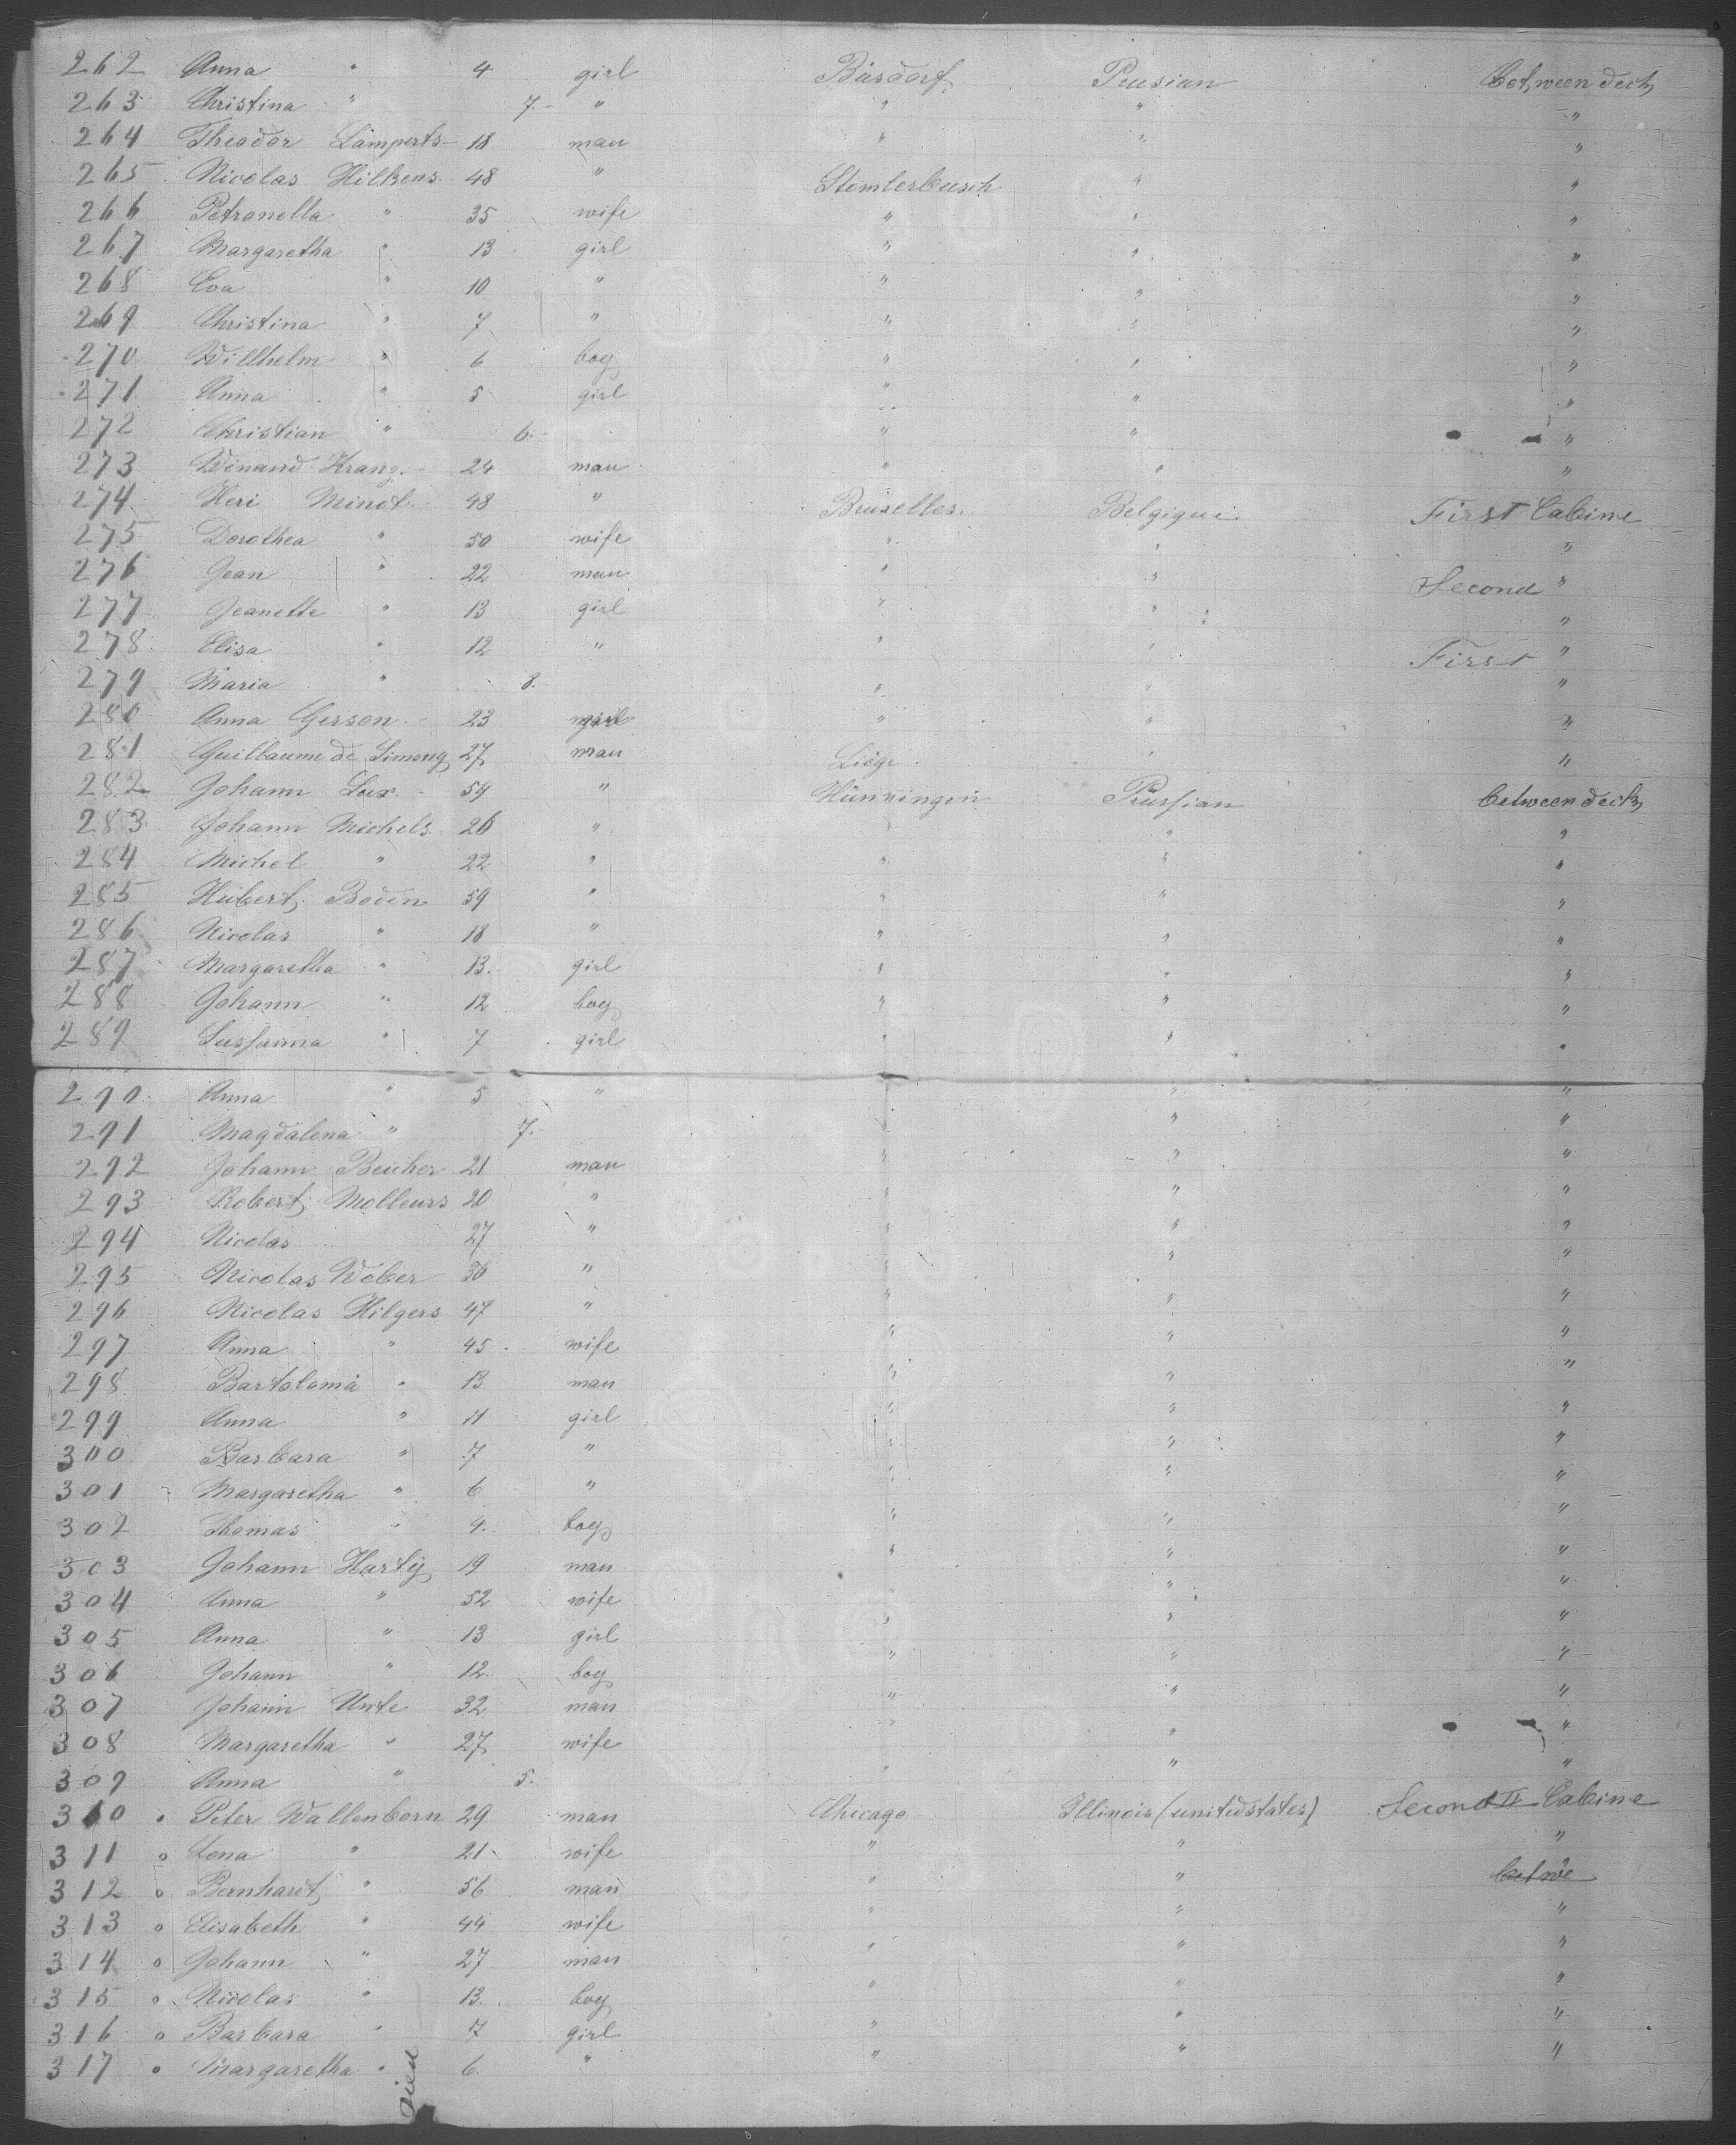 262 Anna " 4 girl Büsdorf Prusian between deck
263 Christina " 7.- " " " "
264 Theodor Lamperts- 18 man " " "
265 Nicolas Hilkens. 48 " Stimlerbusch " "
266 Petronella " 35 wife " " "
267 Margaretha " 13 girl " " "
268 Eva " 10 " " " "
269 Christina " 7 " " " "
270 Willhelm " 6 boy " " "
271 Anna " 5 girl " " "
272 Christian " 6.- " " "
273 Winand Kranz. - 24 man " " "
274 Heri Minot. 48 " Bruxelles. Belgique First Cabine
275 Dorothea " 50 wife " " "
276 Jean " 22 man " " Second "
277 Jeanette " 13 girl " " "
278 Elisa " 12 " " " First "
279 Maria " 8. " " "
280 Anna Gerson - 23 girl " " "
281 Guillaume de Limong 27 man Liége. " "
282 Johann Lux. - 59 " Hünningen Prussian between deck
283 Johann Michels. 26 " " " "
284 Michel " 22 " " " "
285 Hubert Boden 59 " " " "
286 Nicolas " 18 " " " "
287 Margaretha " 13. girl " " "
288 Johann " 12 boy " " "
289 Sussanna " 7 girl " " "
290 Anna " 5 " " " "
291 Magdalena " 7.- " " "
292 Johann Beicher 21 man " " "
293 Robert Molleurs 20 " " " "
294 Nicolas 27 " " " "
295 Nicolas Weber 30 " " " "
296 Nicolas Hilgers 47 " " " "
297 Anna " 45 wife " " "
298 Bartolomä " 13 man " " "
299 Anna " 11 girl " " "
300 Barbara " 7 " " " "
301 Margaretha " 6 " " " "
302 Thomas " 4. boy " " "
303 Johann Hartij 19 man " " "
304 Anna " 52 wife " " "
305 Anna " 13 girl " " "
306 Johann " 12. boy " " "
307 Johann Unte 32 man " " "
308 Margaretha " 27 wife " " "
309 Anna " 5. " " "
310 Peter Wallenborn 29 man Chicago Illinois (unitedstates) Second II Cabine
311 o Lena " 21 wife " " "
312 o Bernhardt " 56 man " " betwe
313 o Elisabeth " 44 wife " " "
314 o Johann " 27 man " " "
315 o Nicolas " 13. boy " " "
316 o Barbara " 7 girl " " "
317 o Margaretha " 6. " " " "
Died